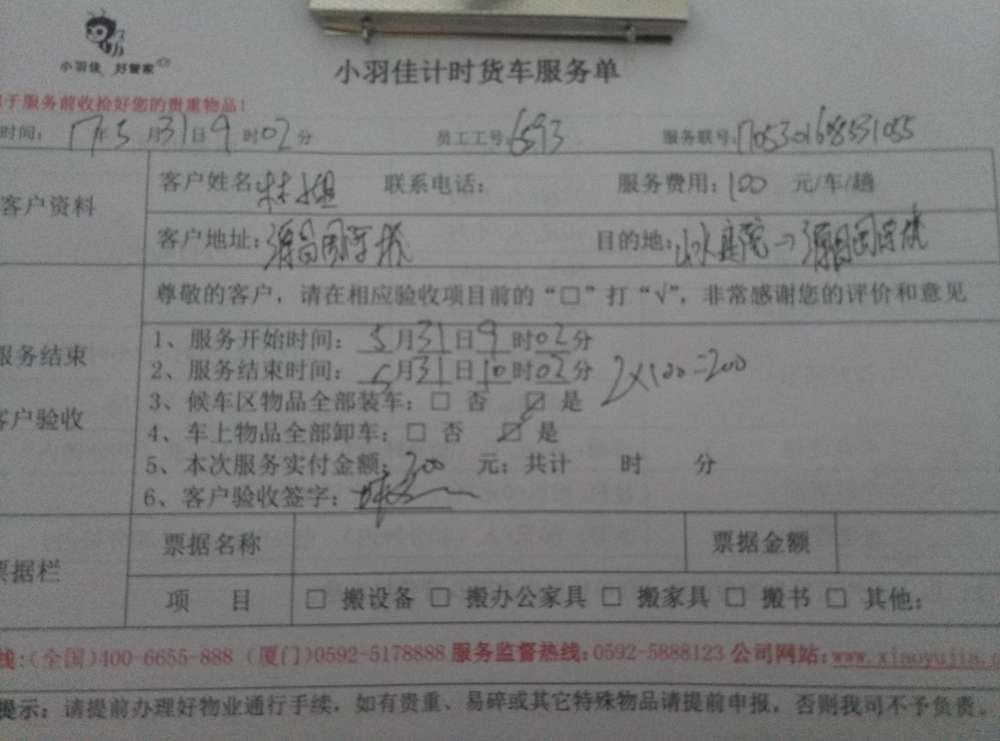 小羽佳 好管家
小羽佳计时货车服务单
于服务前收拾好您的贵重物品！
时间： 17年5月31日9时02分 员工工号：6593 服务联号：
客户资料
客户姓名：林姐 联系电话： 服务费用：100 元/车/趟
客户地址：源昌国际城 目的地：山水庭院→源昌国际城
尊敬的客户，请在相应验收项目前的“□”打“√”，非常感谢您的评价和意见
服务结束
客户验收
1、服务开始时间：5月31日9时02分
2、服务结束时间：5月31日10时02分 2×100=200
3、候车区物品全部装车：□ 否 ☑ 是
4、车上物品全部卸车：□ 否 ☑ 是
5、本次服务实付金额：200 元；共计 时 分
6、客户验收签字：
票据栏
票据名称 票据金额
项 目 □ 搬设备 □ 搬办公家具 □ 搬家具 □ 搬书 □ 其他：
线：(全国)400-6655-888 (厦门)0592-5178888 服务监督热线：0592-5888123 公司网站：www.xiaoyujia.
提示：请提前办理好物业通行手续，如有贵重、易碎或其它特殊物品请提前申报，否则我司不予负责。